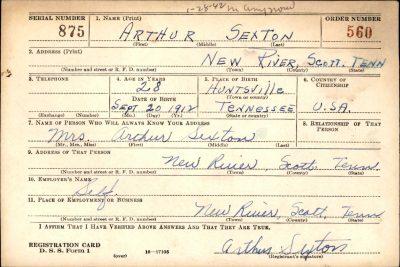 SERIAL NUMBER 1. NAME (Print) ORDER NUMBER
875 ARTHUR SEXTON 560
(First) (Middle) (Last)
2. ADDRESS (Print)
NEW RIVER, SCOTT. TENN
(Number and street or R. F. D. number) (Town) (County) (State)
3. TELEPHONE 4. AGE IN YEARS 5. PLACE OF BIRTH 6. COUNTRY OF CITIZENSHIP
28 HUNTSVILLE
DATE OF BIRTH (Town or county)
SEPT 20 1912 TENNESSEE U.S.A.
(Exchange) (Number) (Mo.) (Day) (Yr.) (State or country)
7. NAME OF PERSON WHO WILL ALWAYS KNOW YOUR ADDRESS 8. RELATIONSHIP OF THAT PERSON
Mrs. Arthur Sexton
(Mr., Mrs., Miss) (First) (Middle) (Last)
9. ADDRESS OF THAT PERSON
New River, Scott, Tenn
(Number and street or R. F. D. number) (Town) (County) (State)
10. EMPLOYER'S NAME
Self
11. PLACE OF EMPLOYMENT OR BUSINESS
New River, Scott, Tenn
(Number and street or R. F. D. number) (Town) (County) (State)
I AFFIRM THAT I HAVE VERIFIED ABOVE ANSWERS AND THAT THEY ARE TRUE.
REGISTRATION CARD Arthur Sexton
D. S. S. Form 1 (over) 16—17105 (Registrant's signature)